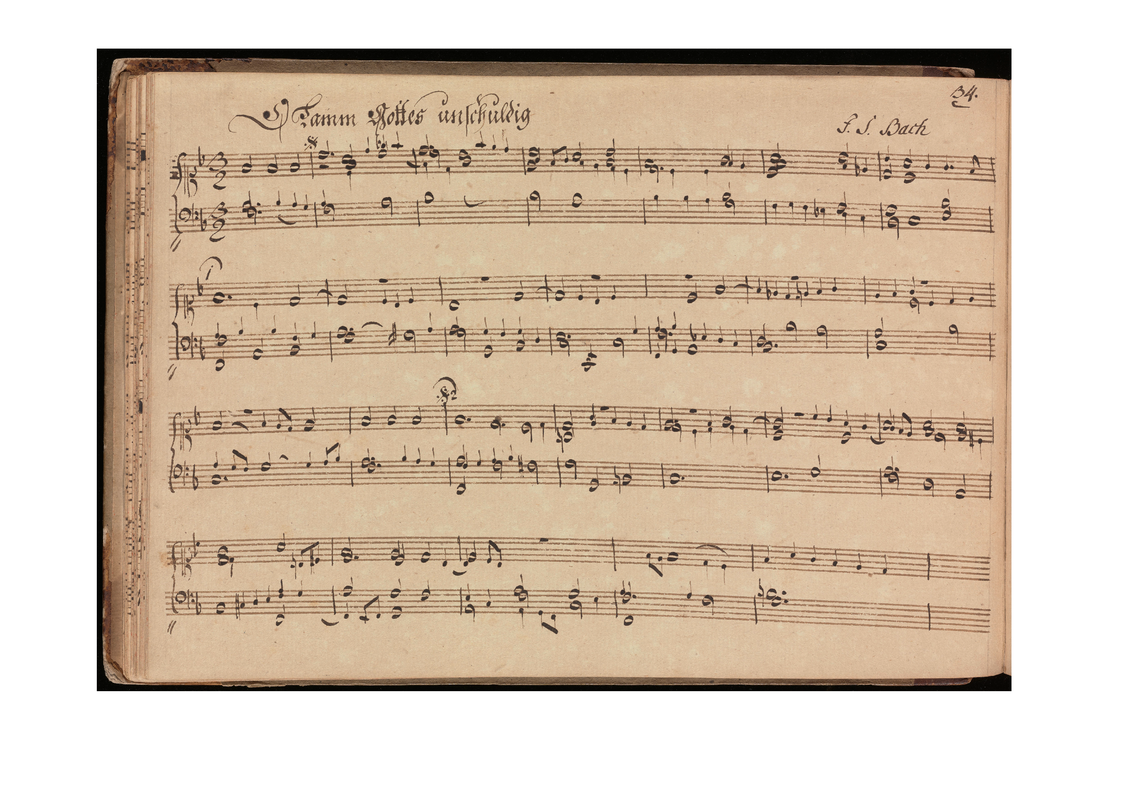 34.
O Lamm Gottes unschuldig
J. S. Bach
3
2
3
2
1
2